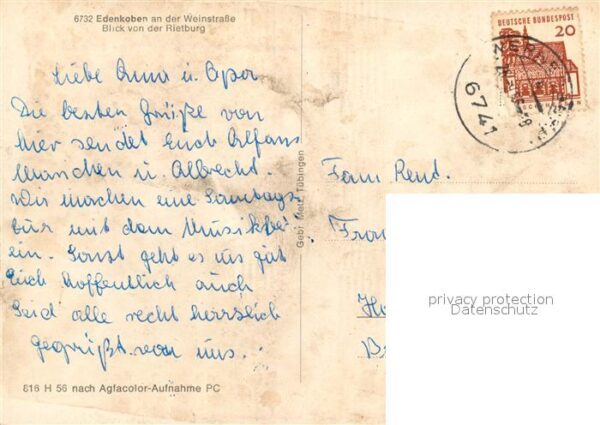 6732 Edenkoben an der Weinstraße
Blick von der Rietburg
DEUTSCHE BUNDESPOST
20
6741
Liebe Oma u. Opa.
Die besten Grüße von
hier sendet Euch Alfons
Mariechen u. Albrecht.
Wir machen eine Samstags
mit dem Musik
ein. Sonst geht es uns gut
Euch hoffentlich auch
Seid alle recht herzlich
gegrüßt von uns.
816 H 56 nach Agfacolor-Aufnahme PC
Gebr. Metz, Tübingen
Fam Rent.
privacy protection
Datenschutz